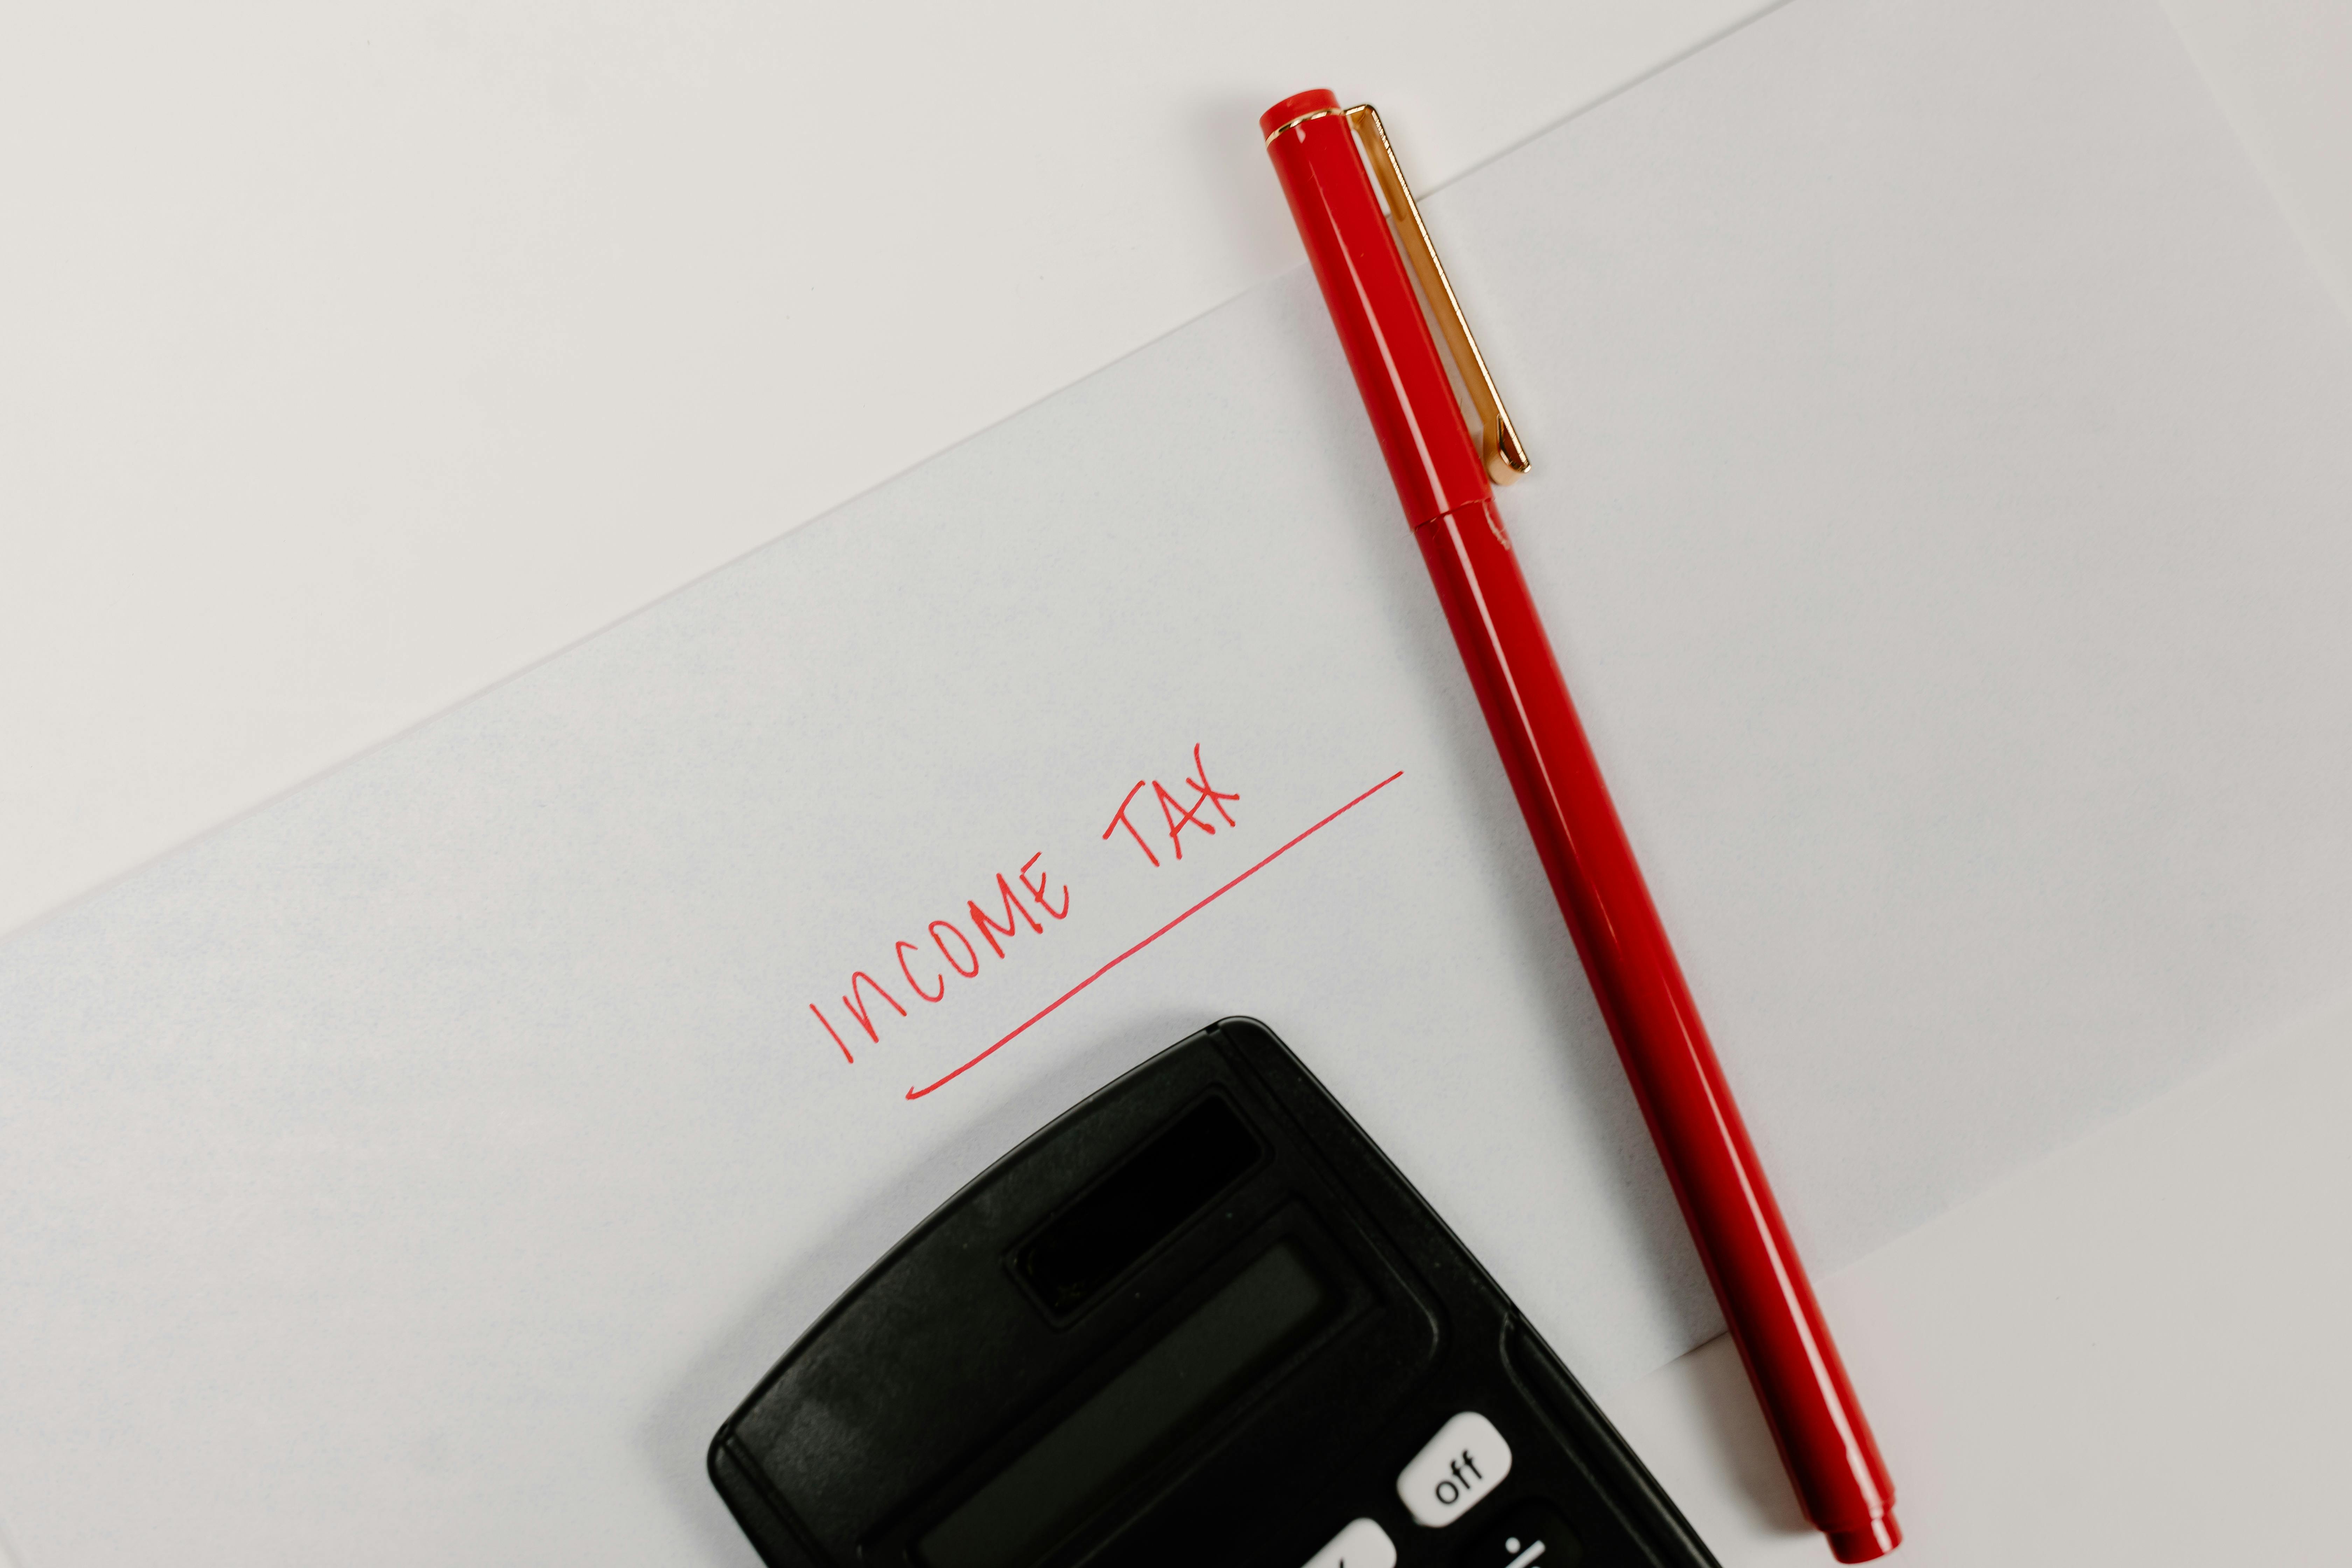 INCOME TAX
off
÷